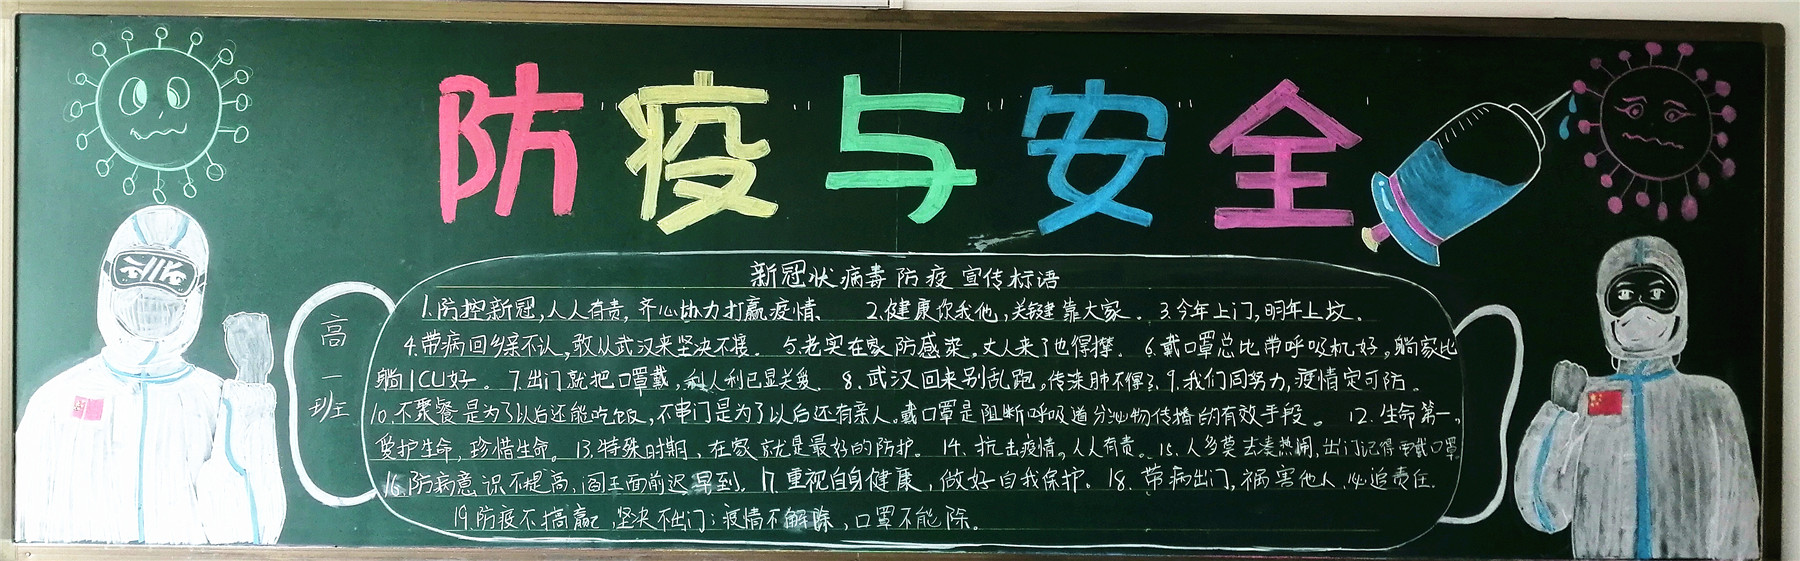 防疫与安全
高一班
新冠状病毒防疫宣传标语
1.防控新冠,人人有责,齐心协力打赢疫情、 2.健康你我他,关键靠大家。 3.今年上门,明年上坟。
4.带病回乡亲不认,敢从武汉来坚决不接。 5.老实在家防感染,丈人来了也得撵。 6.戴口罩总比带呼吸机好。躺家比
躺ICU好。 7.出门就把口罩戴,利人利己显关爱 8.武汉回来别乱跑,传染肺不得了、9.我们同努力,疫情定可防。
10.不聚餐是为了以后还能吃饭,不串门是为了以后还有亲人。戴口罩是阻断呼吸道分泌物传播的有效手段。 12.生命第一,
爱护生命,珍惜生命。 13.特殊时期,在家就是最好的防护。 14.抗击疫情。人人有责。15.人多莫去凑热闹,出门记得要戴口罩
16.防病意识不提高,阎王面前迟早到。17.重视自身健康,做好自我保护。18.带病出门,祸害他人.必追责任.
19.防疫不搞赢,坚决不出门;疫情不解除,口罩不能除。